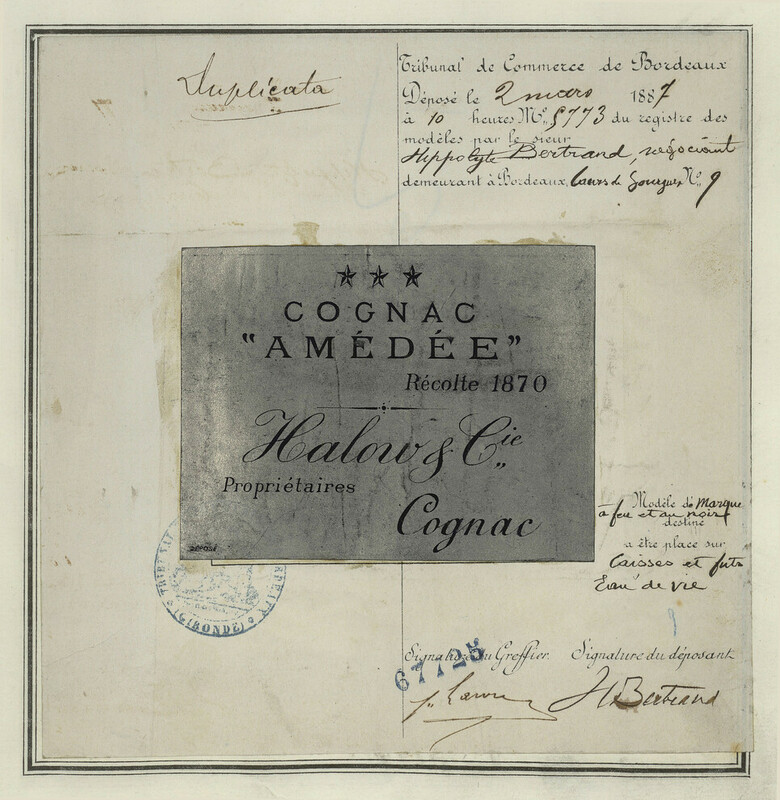 Duplicata
Tribunal de Commerce de Bordeaux
Déposé le 2 mars 1887
à 10 heures Nº 5773 du registre des
modèles par le sieur
Hippolyte Bertrand, négociant
demeurant à Bordeaux, Cours de Gourgues Nº 9
★★★
COGNAC
"AMÉDÉE"
Récolte 1870
Halow & Cie
Propriétaires
Cognac
Modèle de Marque
à feu et au noir
destiné
à être placé sur
Caisses et futs
Eau de vie
TRIBUNAL
(GIRONDE)
Signature du Greffier. Signature du déposant
67725
H Bertrand